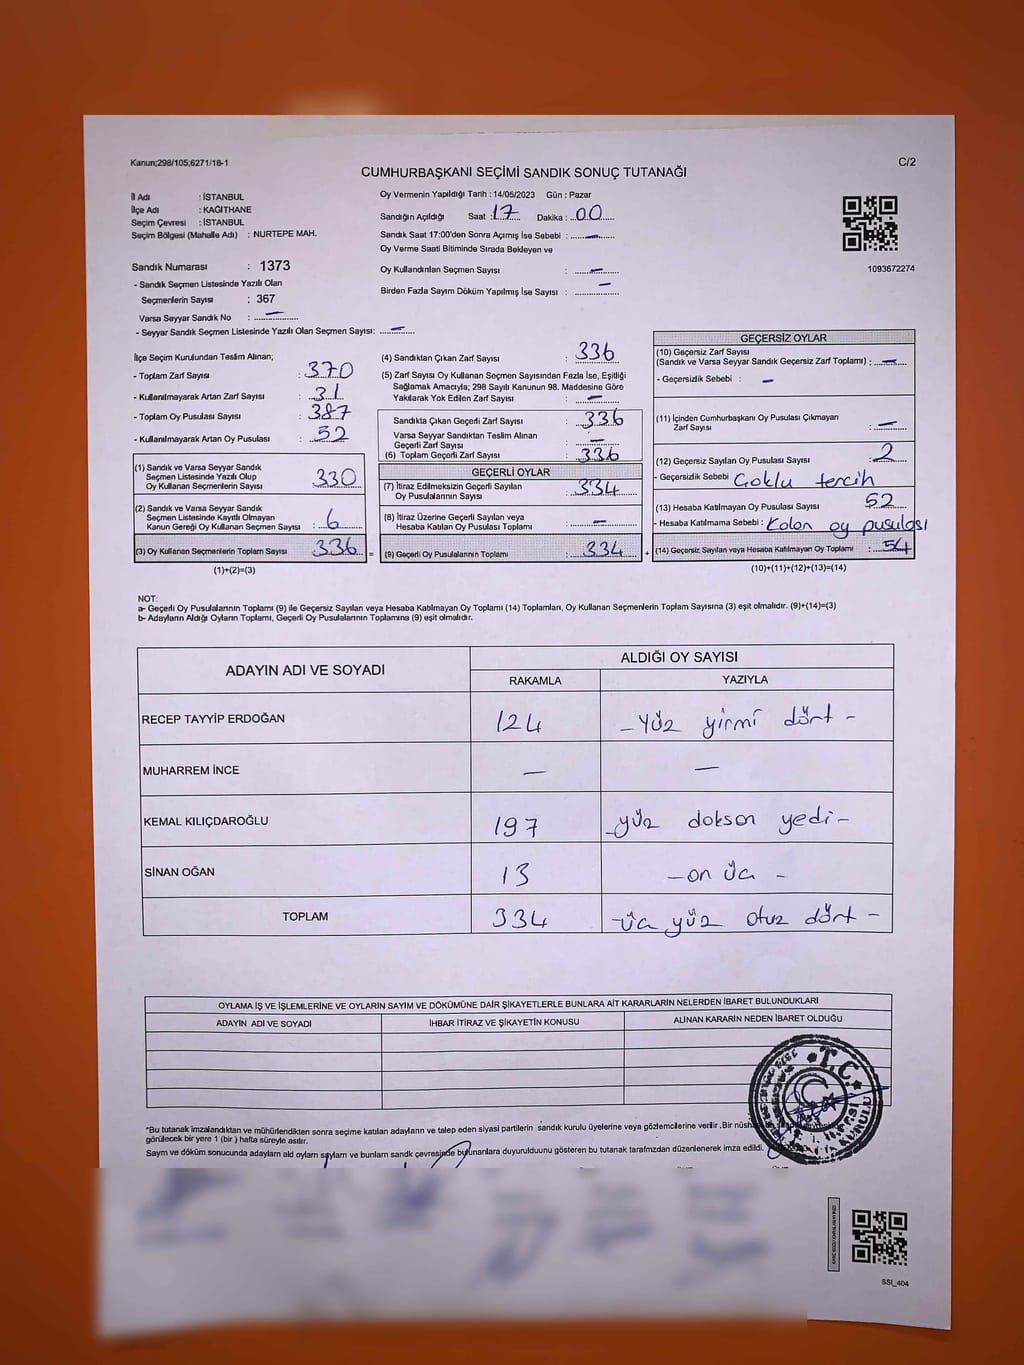 Kanun;298/105;6271/18-1
C/2
CUMHURBAŞKANI SEÇİMİ SANDIK SONUÇ TUTANAĞI
İl Adı : İSTANBUL
İlçe Adı : KAĞITHANE
Seçim Çevresi : İSTANBUL
Seçim Bölgesi (Mahalle Adı) : NURTEPE MAH.
Sandık Numarası : 1373
- Sandık Seçmen Listesinde Yazılı Olan
Seçmenlerin Sayısı : 367
Varsa Seyyar Sandık No : —
- Seyyar Sandık Seçmen Listesinde Yazılı Olan Seçmen Sayısı: —
Oy Vermenin Yapıldığı Tarih : 14/05/2023 Gün : Pazar
Sandığın Açıldığı Saat : 17 Dakika : 00
Sandık Saat 17:00'den Sonra Açımış İse Sebebi : —
Oy Verme Saati Bitiminde Sırada Bekleyen ve
Oy Kullandırılan Seçmen Sayısı : —
Birden Fazla Sayım Döküm Yapılmış İse Sayısı : —
1093672274
İlçe Seçim Kurulundan Teslim Alınan;
- Toplam Zarf Sayısı : 370
- Kullanılmayarak Artan Zarf Sayısı : 31
- Toplam Oy Pusulası Sayısı : 387
- Kullanılmayarak Artan Oy Pusulası : 52
(1) Sandık ve Varsa Seyyar Sandık
Seçmen Listesinde Yazılı Olup
Oy Kullanan Seçmenlerin Sayısı : 330
(2) Sandık ve Varsa Seyyar Sandık
Seçmen Listesinde Kayıtlı Olmayan
Kanun Gereği Oy Kullanan Seçmen Sayısı : 6
(3) Oy Kullanan Seçmenlerin Toplam Sayısı : 336 =
(1)+(2)=(3)
(4) Sandıktan Çıkan Zarf Sayısı : 336
(5) Zarf Sayısı Oy Kullanan Seçmen Sayısından Fazla İse, Eşitliği
Sağlamak Amacıyla; 298 Sayılı Kanunun 98. Maddesine Göre
Yakılarak Yok Edilen Zarf Sayısı : —
Sandıkta Çıkan Geçerli Zarf Sayısı : 336
Varsa Seyyar Sandıktan Teslim Alınan
Geçerli Zarf Sayısı : —
(6) Toplam Geçerli Zarf Sayısı : 336
GEÇERLİ OYLAR
(7) İtiraz Edilmeksizin Geçerli Sayılan
Oy Pusulalarının Sayısı : 334
(8) İtiraz Üzerine Geçerli Sayılan veya
Hesaba Katılan Oy Pusulası Toplamı : —
(9) Geçerli Oy Pusulalarının Toplamı : 334 +
GEÇERSİZ OYLAR
(10) Geçersiz Zarf Sayısı
(Sandık ve Varsa Seyyar Sandık Geçersiz Zarf Toplamı) : —
- Geçersizlik Sebebi : —
(11) İçinden Cumhurbaşkanı Oy Pusulası Çıkmayan
Zarf Sayısı : —
(12) Geçersiz Sayılan Oy Pusulası Sayısı : 2
- Geçersizlik Sebebi Çoklu tercih
(13) Hesaba Katılmayan Oy Pusulası Sayısı 52
- Hesaba Katılmama Sebebi : Kalan oy pusulası
(14) Geçersiz Sayılan veya Hesaba Katılmayan Oy Toplamı : 54
(10)+(11)+(12)+(13)=(14)
NOT:
a- Geçerli Oy Pusulalarının Toplamı (9) ile Geçersiz Sayılan veya Hesaba Katılmayan Oy Toplamı (14) Toplamları, Oy Kullanan Seçmenlerin Toplam Sayısına (3) eşit olmalıdır. (9)+(14)=(3)
b- Adayların Aldığı Oyların Toplamı, Geçerli Oy Pusulalarının Toplamına (9) eşit olmalıdır.
ADAYIN ADI VE SOYADI
ALDIĞI OY SAYISI
RAKAMLA YAZIYLA
RECEP TAYYİP ERDOĞAN 124 - yüz yirmi dört -
MUHARREM İNCE — —
KEMAL KILIÇDAROĞLU 197 - yüz doksan yedi -
SİNAN OĞAN 13 - on üç -
TOPLAM 334 - üç yüz otuz dört -
OYLAMA İŞ VE İŞLEMLERİNE VE OYLARIN SAYIM VE DÖKÜMÜNE DAİR ŞİKAYETLERLE BUNLARA AİT KARARLARIN NELERDEN İBARET BULUNDUKLARI
ADAYIN ADI VE SOYADI İHBAR İTİRAZ VE ŞİKAYETİN KONUSU ALINAN KARARIN NEDEN İBARET OLDUĞU
T.C.
KURULU
*Bu tutanak imzalandıktan ve mühürlendikten sonra seçime katılan adayların ve talep eden siyasi partilerin sandık kurulu üyelerine veya gözlemcilerine verilir. Bir
görülecek bir yere 1 (bir ) hafta süreyle asılır.
Sayım ve döküm sonucunda adayların ald oyların sayların ve bunların sandk çevresinde bulunanlara duyurulduunu gösteren bu tutanak tarafımzdan düzenlenerek imza edildi.
SSI_404